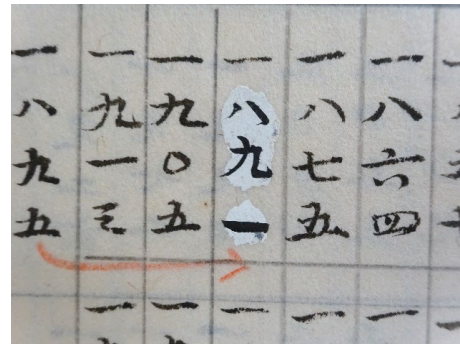 一八六四
一八七五
一八九一
一九〇五
一九一三
一八九五
一
一
一
一
一
一